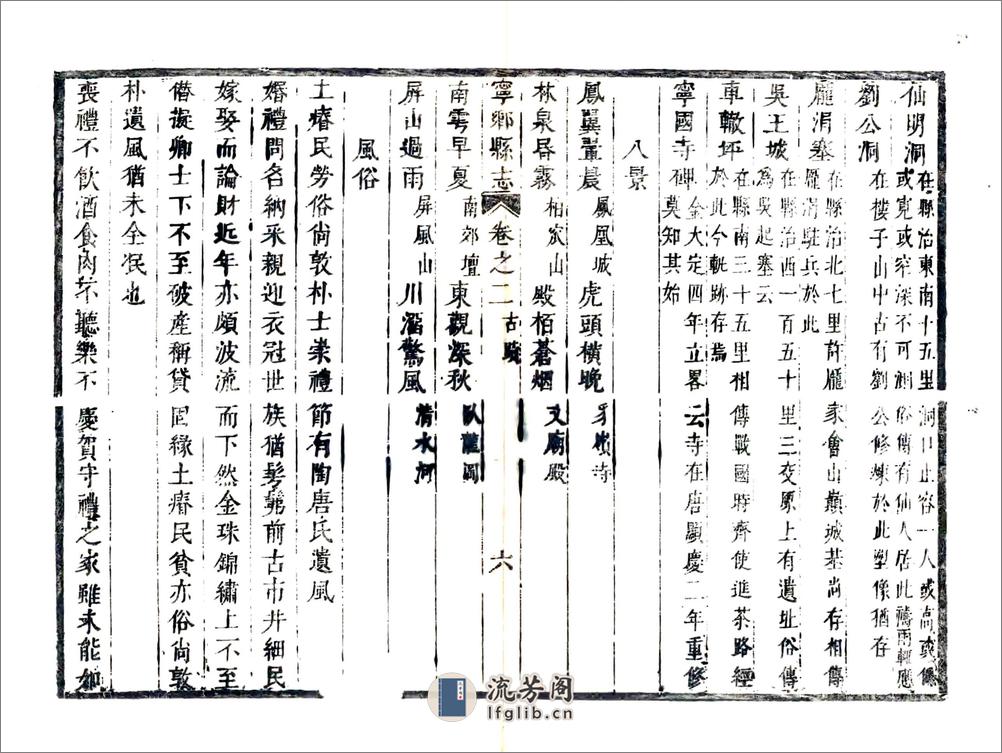 仙明洞在縣治東南十五里洞口止容一人或高或低
或寬或窄深不可測俗傳有仙人居此禱雨輒應
劉公洞在樓子山中古有劉公修煉於此塑像猶存
龐涓寨在縣治北七里許龐家會山巔城基尚存相傳
龐涓駐兵於此
吳王城在縣治西一百五十里三交原上有遺址俗傳
為吳起塞云
車轍坪在縣南三十五里相傳戰國時齊使進茶路經
於此今軌跡存焉
寧國寺碑金大定四年立畧云寺在唐顯慶二年重修
莫知其始
八景
鳳翼翬晨 鳳凰城 虎頭橫晚 寺
林泉昏霧 柏窊山 殿栢蒼烟 文廟殿
寧鄉縣志 卷之二 古蹟 六
南雩早夏 南郊壇 東觀深秋 臥龍岡
屏山過雨 屏風山 川溜驚風 清水河
風俗
土瘠民勞俗尚敦朴士崇禮節有陶唐氏遺風
婚禮問名納采親迎衣冠世族猶髣髴前古市井細民
嫁娶而論財近年亦頗波流而下然金珠錦繡上不至
僭擬卿士下不至破產稱貸囙緣土瘠民貧亦俗尚敦
朴遺風猶未全泯也
喪禮不飲酒食肉不聽樂不慶賀守禮之家雖未能如
流芳阁
lfglib.cn